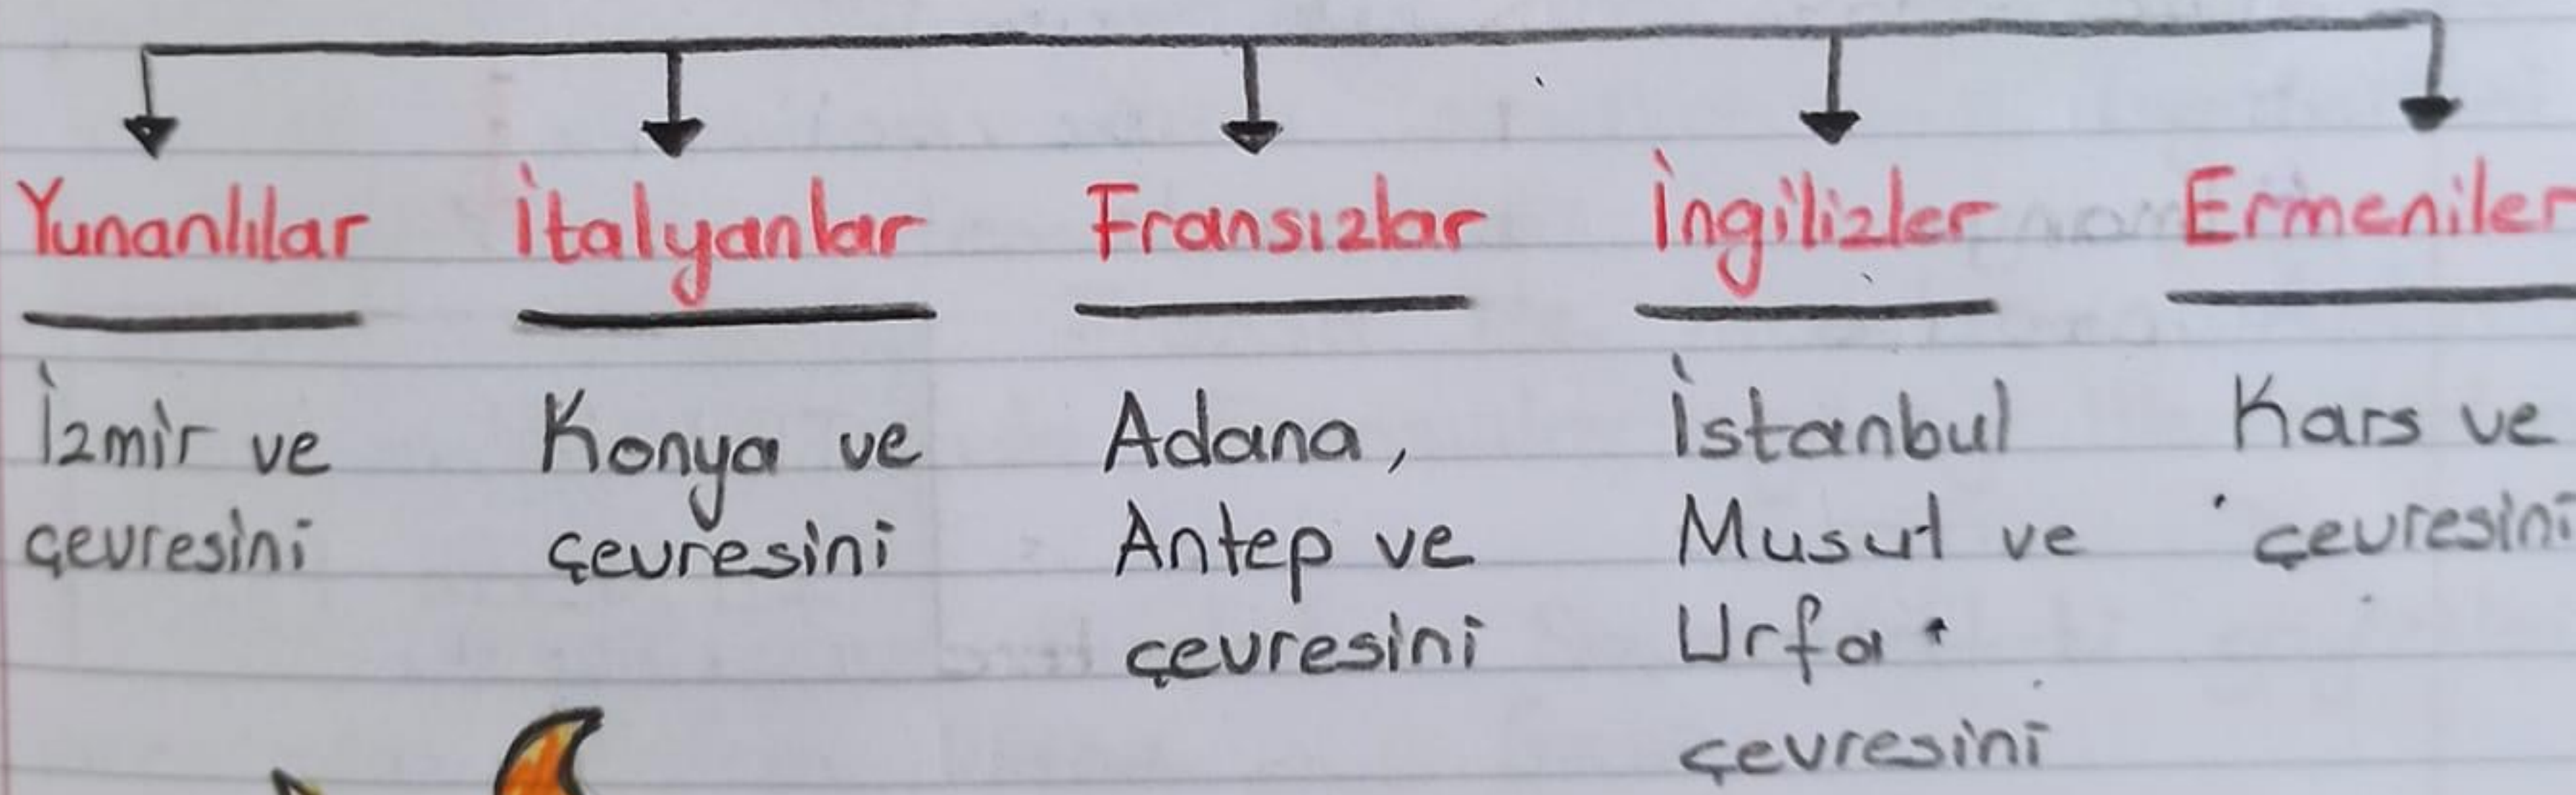 Yunanlılar
İzmir ve
çevresini
İtalyanlar
Konya ve
çevresini
Fransızlar
Adana,
Antep ve
çevresini
İngilizler
İstanbul
Musul ve
Urfa
çevresini
Ermeniler
Kars ve
çevresini